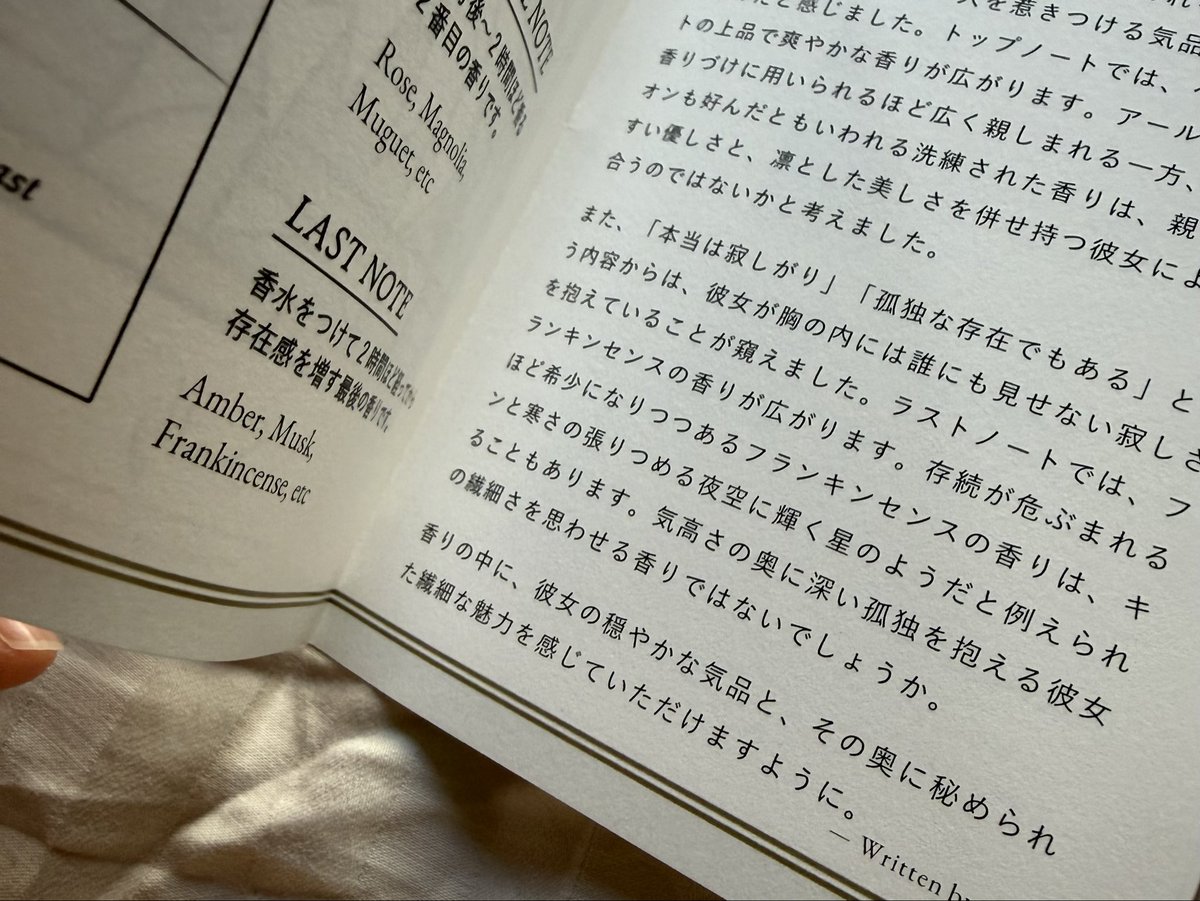 ast
NOTE
後〜2時間ほど
2番目の香りです。
Rose, Magnolia,
Muguet, etc
LAST NOTE
香水をつけて2時間ほど経ってから
存在感を増す最後の香りです。
Amber, Musk,
Frankincense, etc
を惹きつける気品
と感じました。トップノートでは、
トの上品で爽やかな香りが広がります。アール
香りづけに用いられるほど広く親しまれる一方、
オンも好んだともいわれる洗練された香りは、親
すい優しさと、凛とした美しさを併せ持つ彼女によ
合うのではないかと考えました。
また、「本当は寂しがり」「孤独な存在でもある」と
う内容からは、彼女が胸の内には誰にも見せない寂しさ
を抱えていることが窺えました。ラストノートでは、フ
ランキンセンスの香りが広がります。存続が危ぶまれる
ほど希少になりつつあるフランキンセンスの香りは、キ
ンと寒さの張りつめる夜空に輝く星のようだと例えられ
ることもあります。気高さの奥に深い孤独を抱える彼女
の繊細さを思わせる香りではないでしょうか。
香りの中に、彼女の穏やかな気品と、その奥に秘められ
た繊細な魅力を感じていただけますように。
— Written by